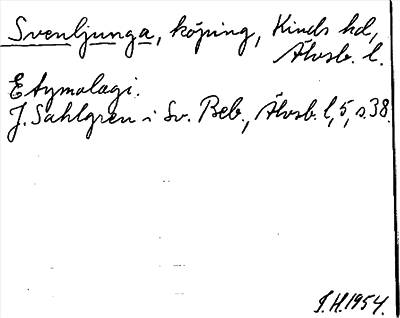 Svenljunga, köping, Kinds hd,
Älvsb. l.
Etymologi.
J. Sahlgren i Sv. Beb., Älvsb. l, 5, s. 38.
I. H. 1954.